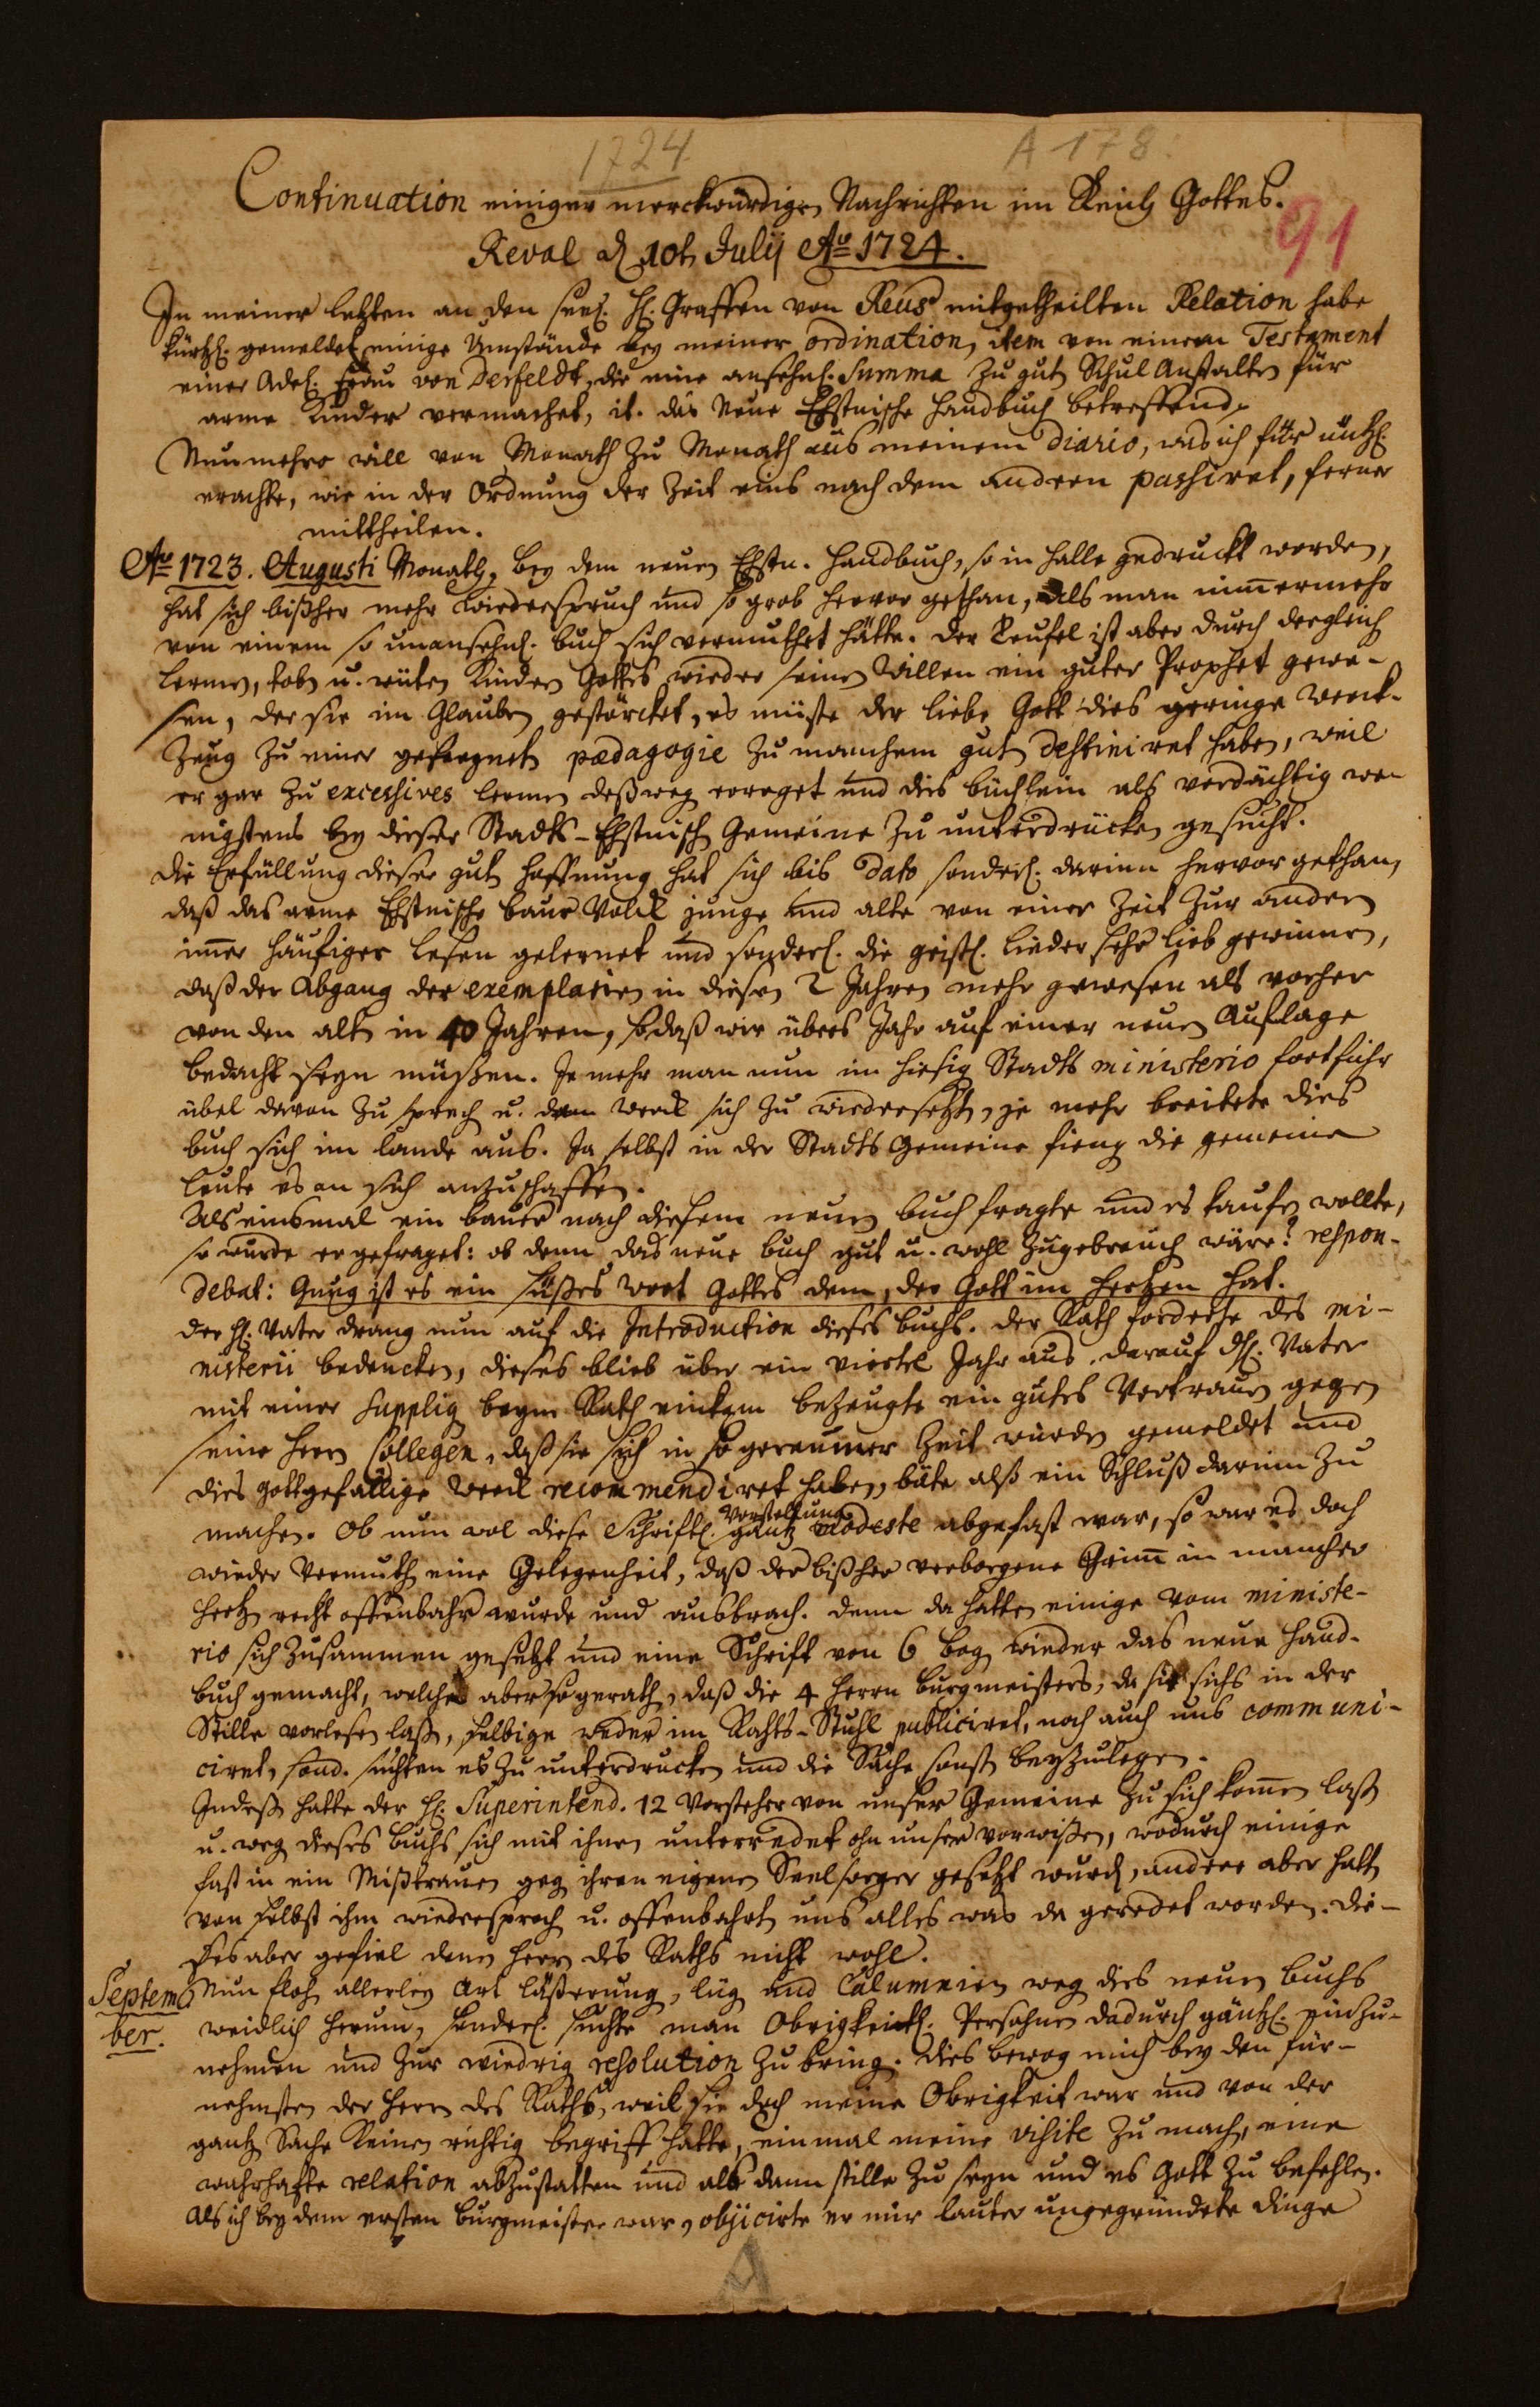 1724
A 178.
91
Continuation einiger merckwürdigen Nachrichten im Reich Gottes.
Reval d. 10t. Julij Ao 1724.
In meiner letzten an den seel. H. Graffen von Reus mitgetheilten Relation habe
kürtzl. gemeldet einige Umstände bey meiner ordination, item von einem Testament
einer Adel. Frau von Derfeldt, die eine ansehnl. Summa zu gut Schul Anstalten für
arme Kinder vermachet, it. das Neue Ehstnische Handbuch betreffend.
Nunmehro will von Monath zu Monath aus meinem Diario, was ich für nützl.
erachte, wie in der Ordnung der Zeit eins nach dem andern passiret, ferner
mittheilen.
Ao 1723. Augusti Monath, bey dem neuen Ehstn. Handbuch, so in Halle gedruckt worden,
hat sich bißher mehr wiederspruch und so grob hervor gethan, als man nimmermehr
von einem so unansehnl. buch sich vermuthet hätte. Der Teufel ist aber durch dergleich
lermen, tobn u. wüten Kindern Gottes wieder seinen Willen ein guter Prophet gewe-
sen, der sie im Glauben gestärcket, es müste der liebe Gott dies geringe Werck-
zeug zu einer gesegneten pædagogie zu manchem gut destiniret haben, weil
er gar zu excessives lermen deßweg erreget und dis büchlein als verdächtig we-
nigstens bey dieser Stadts-Ehstnisch Gemeine zu unterdrücken gesucht.
Die Erfüllung dieser gut Hoffnung hat sich bis dato sonderl. darinn hervor gethan,
daß das arme Ehstnische baur Volck junge und alte von einer Zeit zur andern
immer häufiger lesen gelernet und sonderl. die geistl. lieder sehr lieb gewinnen,
daß der Abgang der exemplarien in diesen 2 Jahren mehr gewesen als vorher
von den alt in 40 Jahren, so daß wir übers Jahr auf einer neuen Auflage
bedacht seyn müßen. Je mehr man nun im hiesig Stadts ministerio fortfuhr
übel davon zu sprech u. dem Werck sich zu wiedersetzt, je mehr breitete dies
buch sich im lande aus. Ja selbst in der Stadts Gemeine fieng die gemeine
leute es an sich anzuschaffen.
Als einsmal ein bauer nach diesem neuen buch fragte und es kaufen wollte,
so wurde er gefraget: ob denn das neue buch gut u. wohl zugebrauch wäre? respon-
debat: Gnug ist es ein süßes Wort Gottes dem, der Gott im Hertzen hat.
Der H. Vater drang nun auf die Introduction dieses buchs. Der Rath forderte des mi-
nisterii bedencken, dieses blieb über ein viertel Jahr aus. darauf d. H. Vater
mit einer Supplig beym Rath einkam bezeugte ein gutes Vertrauen gegen
seine Herrn Collegen, daß sie sich in so geraumer Zeit würden gemeldet und
dies gottgefällige Werck recommendiret haben, bäte alß ein Schluß darinn zu
machen. Ob nun wol diese Schriftl. Vorstellung gantz modeste abgefast war, so war es doch
wieder Vermuth eine Gelegenheit, daß der bißher verborgene Grimm in mancher
Hertz recht offenbahr wurde und ausbrach. denn da hatte einige vom ministe-
rio sich zusammen gesetzt und eine Schrift von 6 bog. wieder das neue Hand-
buch gemacht, welche aber so gerath, daß die 4 Herrn Burgmeisters, da sie sichs in der
Stille vorlesen laß, selbige weder im Rahts-Stuhl publiciret, noch auch uns communi-
ciret, sond. suchten es zu unterdrucken und die Sache sonst beyzulegen.
Indeß hatte der H. Superintend. 12 Vorsteher von unser Gemeine zu sich kommen laß
u. weg dieses buchs sich mit ihnen unterredet ohn unser vorwißen, wodurch einige
fast in ein Mißtrauen geg ihren eigenen Seelsorger gesetzt wurd, andere aber hatt
von selbst ihm wiedersproch u. offenbahrt uns alles was da geredet worden. Die-
ses aber gefiel denen Herrn des Raths nicht wohl.
Septem-
ber.
Nun floh allerley Art läßterung, lüg und Calumnien weg dies neuen buchs
weidlich herum, sonderl. suchte man Obrigkeitl. Persohnen dadurch gäntzl. einzu-
nehmen und zur wiedrig resolution zu bring. Dies bewog mich bey den für-
nehmsten der Herrn des Raths, weil sie doch meine Obrigkeit war und von der
gantz Sache keinen richtig begriff hatte, einmal meine visite zu mach, eine
wahrhafte relation abzustatten und als dann stille zu seyn und es Gott zu befehlen.
Als ich bey dem ersten Burgmeister war, objicirte er mir lauter ungegründete Dinge
A